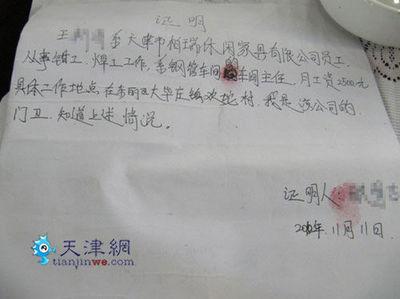 证明
王 系天津市柏瑞休闲家具有限公司员工
从事钳工、焊工工作,系钢管车间的车间主任,月工资2500元
具体工作地点在东丽区大毕庄镇欢坨村,我是该公司的
门卫,知道上述情况。
证明人:
年11月11日
天津網
tianjinwe.com